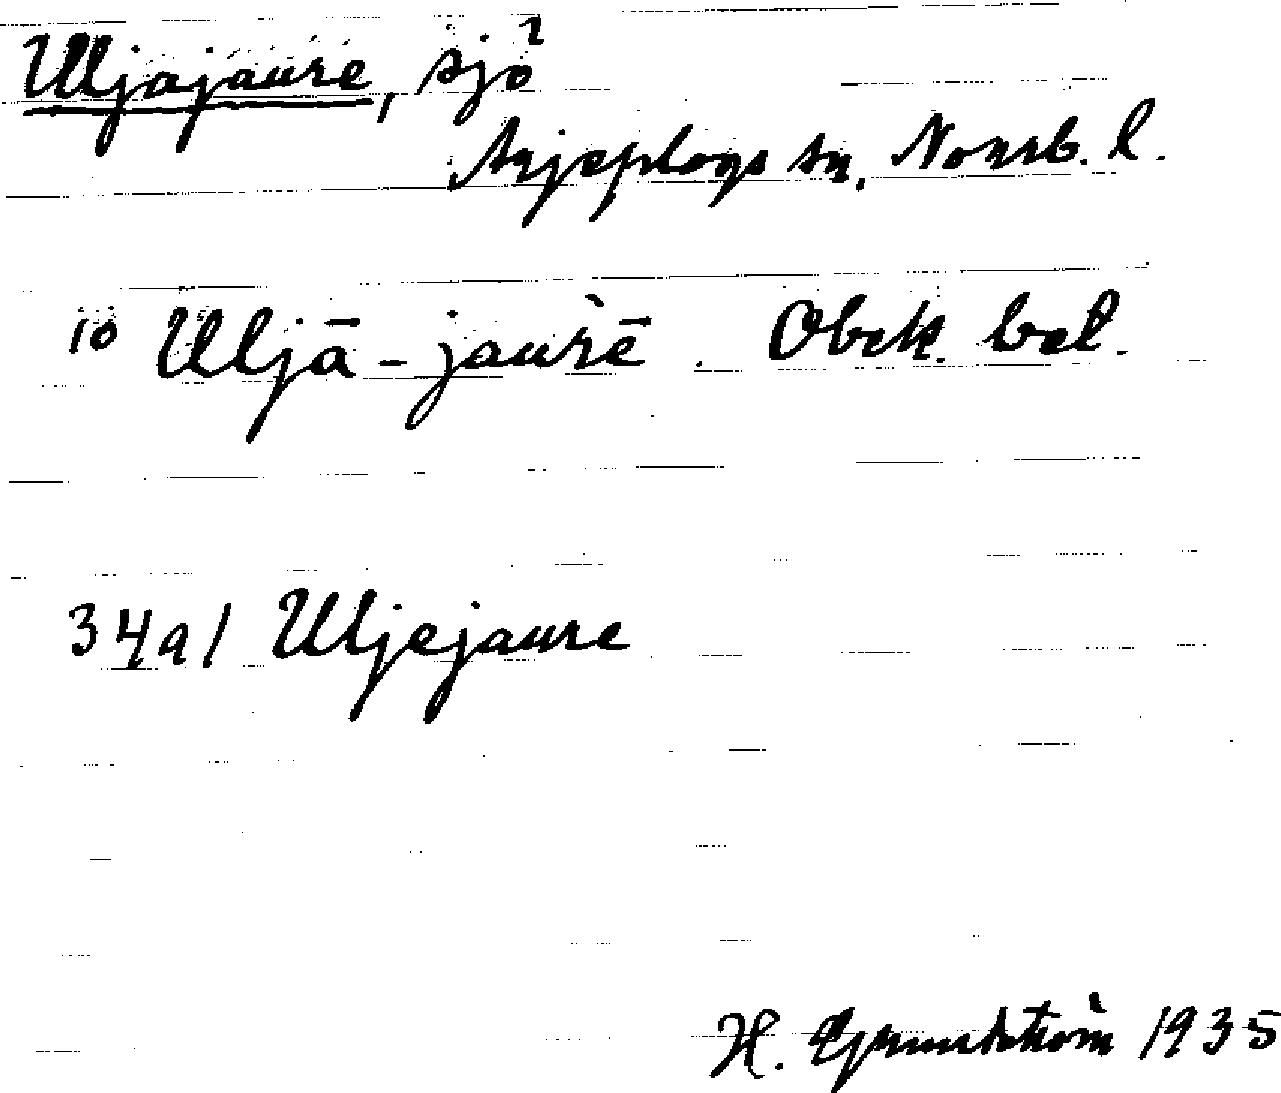 Uljajaure, sjö
Arjeplogs sn, Norrb. l.
10 Uljā-jaurē. Obek. bet.
34a/ Uljejaure
H. Grundström 1935